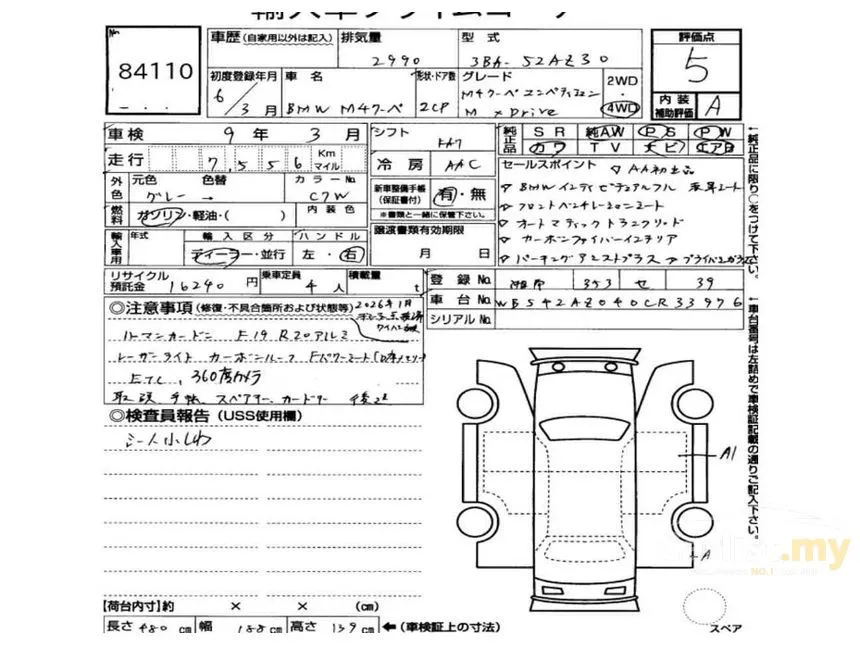 輸入車プライムコーナー
No.
84110
車歴 (自家用以外は記入)
排気量
2990
型式
3BA-52AZ30
評価点
5
初度登録年月
6/3月
車名
BMW M4クーペ
形状・ドア数
2CP
グレード
M4クーペ コンペティション
M xDrive
2WD
・
4WD
内装
補助評価
A
車検
9年3月
シフト
FA7
純正品
SR 純AW PS PW
カワ TV ナビ エアB
走行
7,556
Km
マイル
冷房
AAC
セールスポイント
▽ AA初出品
外色
元色
色替
グレー →
カラーNo.
C7W
新車整備手帳
(保証書付)
有・無
※書類と一緒に保管下さい。
燃料
ガソリン・軽油・( )
内装色
▽ フロントベンチレーションシート
▽ オートマティックトランクリッド
▽ カーボンファイバーインテリア
▽ パーキングアシストプラス
輸入車用
年式
輸入区分
ディーラー・並行
ハンドル
左・右
譲渡書類有効期限
月 日
リサイクル
預託金
16290円
乗車定員
4人
積載量
t
登録No.
湘南 353 せ 39
車台No.
WB542AZ040CR33976
シリアルNo.
◎注意事項 (修復・不具合箇所および状態等)
2026年1月
ハーマンカードン F19 R20アルミ
レーザーライト カーボンルーフ
ETC、360度カメラ
取説、手帳、スペアキー、カードキー 後2ℓ
◎検査員報告 (USS使用欄)
シート小しわ
A1
A
スペア
【荷台内寸】約 × × (cm)
長さ 480 cm 幅 188 cm 高さ 139 cm ←(車検証上の寸法)
←純正品に限り○をつけて下さい。
←車台番号は左詰めで車検証記載の通りご記入下さい。
.my
NO.1